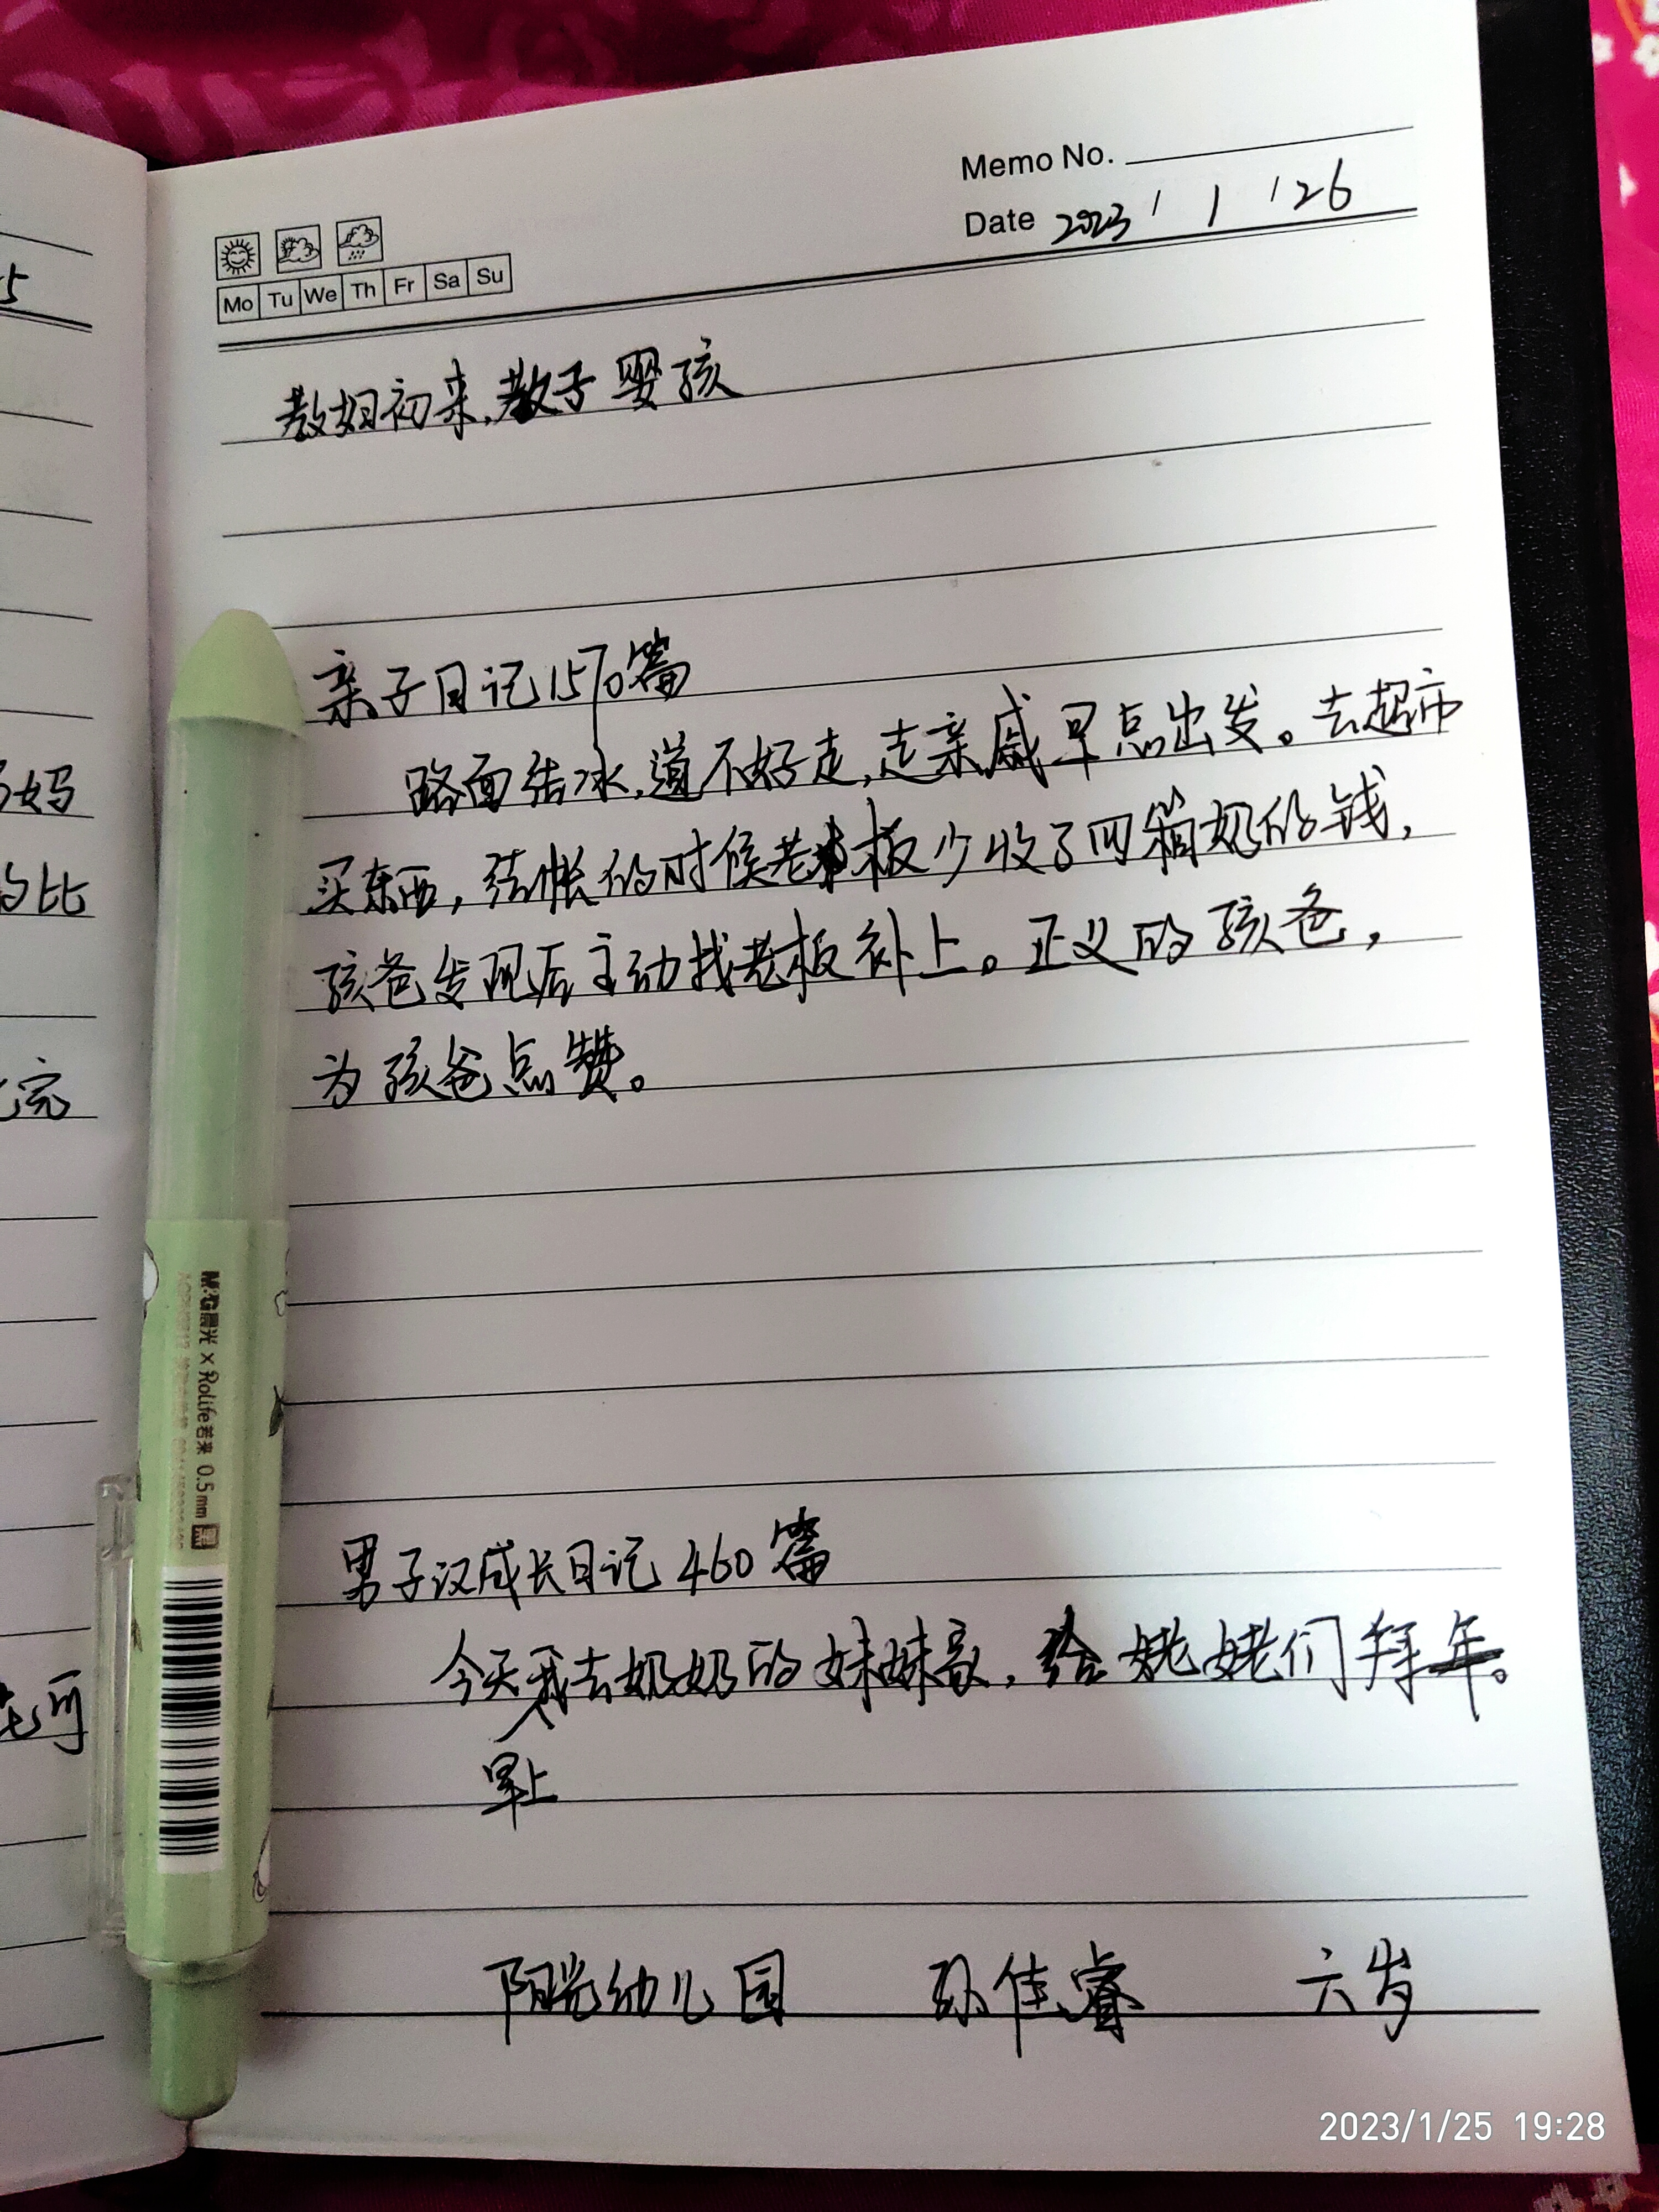 Memo No.
Date 2023 / 1 / 26
Mo Tu We Th Fr Sa Su
教妇初来,教子婴孩
亲子日记1570篇
路面结冰,道不好走,走亲戚早点出发。去超市
买东西,结帐的时候老板少收了四箱奶的钱,
孩爸发现后主动找老板补上。正义的孩爸,
为孩爸点赞。
男子汉成长日记460篇
今天我去奶奶的妹妹家,给姥姥们拜年。
早上
阳光幼儿园 孙佳睿 六岁
5
妈
的比
完
可
M&G晨光 × Rolife若来 0.5mm 黑
2023/1/25 19:28